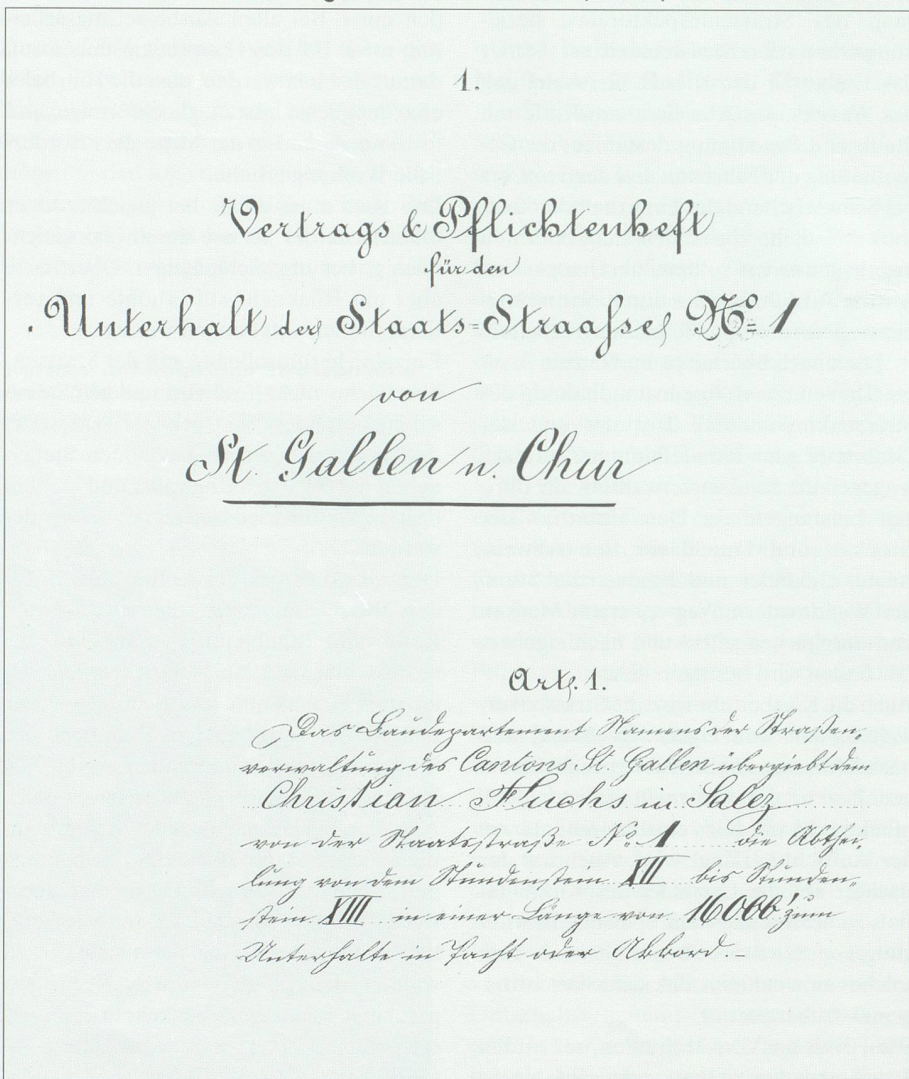 1.
Vertrags & Pflichtenheft
für den
Unterhalt der Staats=Straasse No 1
von
St. Gallen n. Chur
Art. 1.
Das Baudepartement Namens der Straßen-
verwaltung des Cantons St. Gallen übergiebt dem
Christian Fuchs in Salez
von der Staatsstraße No 1 die Abthei-
lung von dem Stundenstein XII bis Stunden-
stein XIII in einer Länge von 16000' zum
Unterhalte in Pacht oder Akkord.-